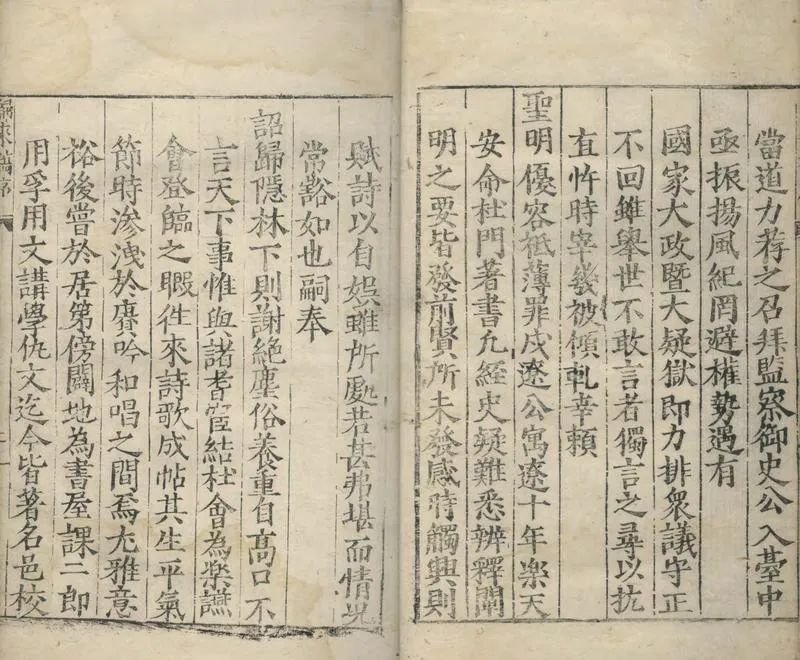 當道力荐之召拜監察御史公入臺中
亟振揚風紀罔避權勢遇有
國家大政暨大疑獄即力排衆議守正
不回雖舉世不敢言者獨言之尋以抗
直忤時宰幾被傾軋幸賴
聖明優容祗薄罪戍遼公寓遼十年樂天
安命杜門著書凢經史疑難悉辨釋闡
明之要皆發前賢所未發感時觸興則
賦詩以自娛雖所處若甚弗堪而情況
常豁如也嗣奉
詔歸隱林下則謝絕塵俗養重自高口不
言天下事惟與諸耆宦結社會為樂讌
會登臨之暇徃來詩歌成帖其生平氣
節時滲洩於賡吟和唱之間焉尤雅意
裕後嘗於居第傍闢地為書屋課二郎
用孚用文講學仇文迄今皆著名邑校